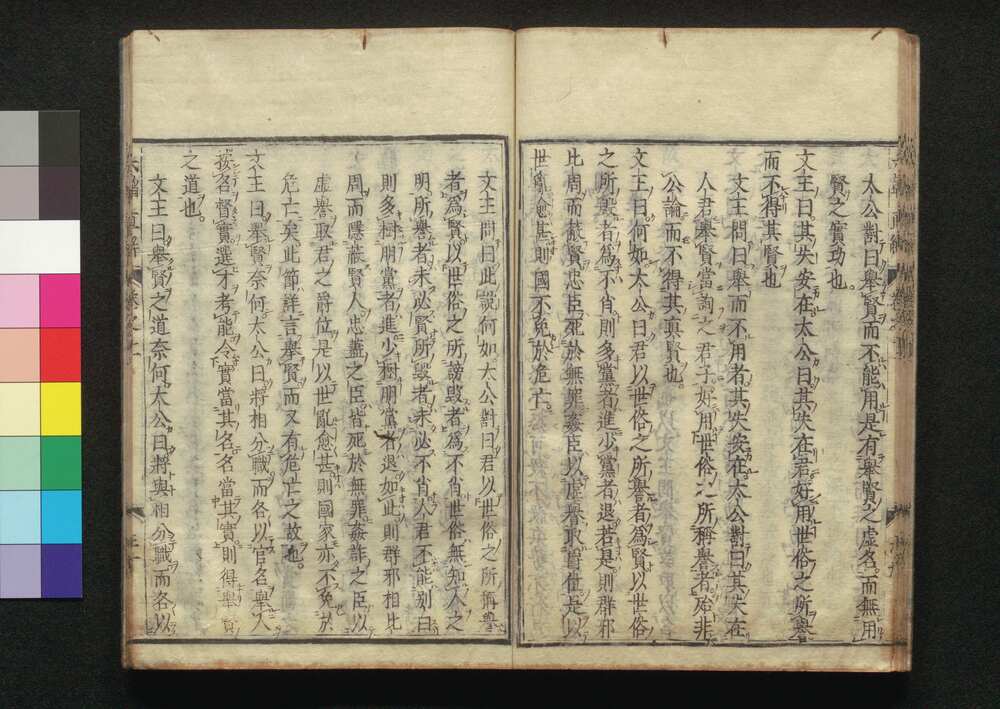 太公對曰舉賢而不能用是有舉賢之虛名而無用
賢之實功也。
文王曰其失安在太公曰其失在君好用世俗之所譽
而不得其賢也
文王問曰舉而不用者其失安在。太公對曰其失在
人君舉賢當詢之君子好用世俗之所稱譽者殆非
公論而不得其真賢也
文王曰何如太公曰君以世俗之所譽者爲賢以世俗
之所毀者爲不肖則多黨者進少黨者退若是則群邪
比周而蔽賢忠臣死於無罪姦臣以虛譽取爵位是以
世亂愈甚則國不免於危亡。
文王問曰此說何如。太公對曰君以世俗之所稱譽
者爲賢以世俗之所謗毀者爲不肖世俗無知人之
明所譽者未必賢所毀者未必不肖人君不能別白
則多樹朋黨者進少樹朋黨者退如此則群邪相比
周而隱蔽賢人忠藎之臣皆死於無罪姦詐之臣以
虛譽取君之爵位是以世亂愈甚則國家亦不免於
危亡矣此節詳言舉賢而又有危亡之故也。
文王曰舉賢奈何太公曰將相分職而各以官名舉人
按名督實選才考能令實當其名名當其實則得舉賢
之道也。
文王曰舉賢之道奈何太公曰將與相分職而各以